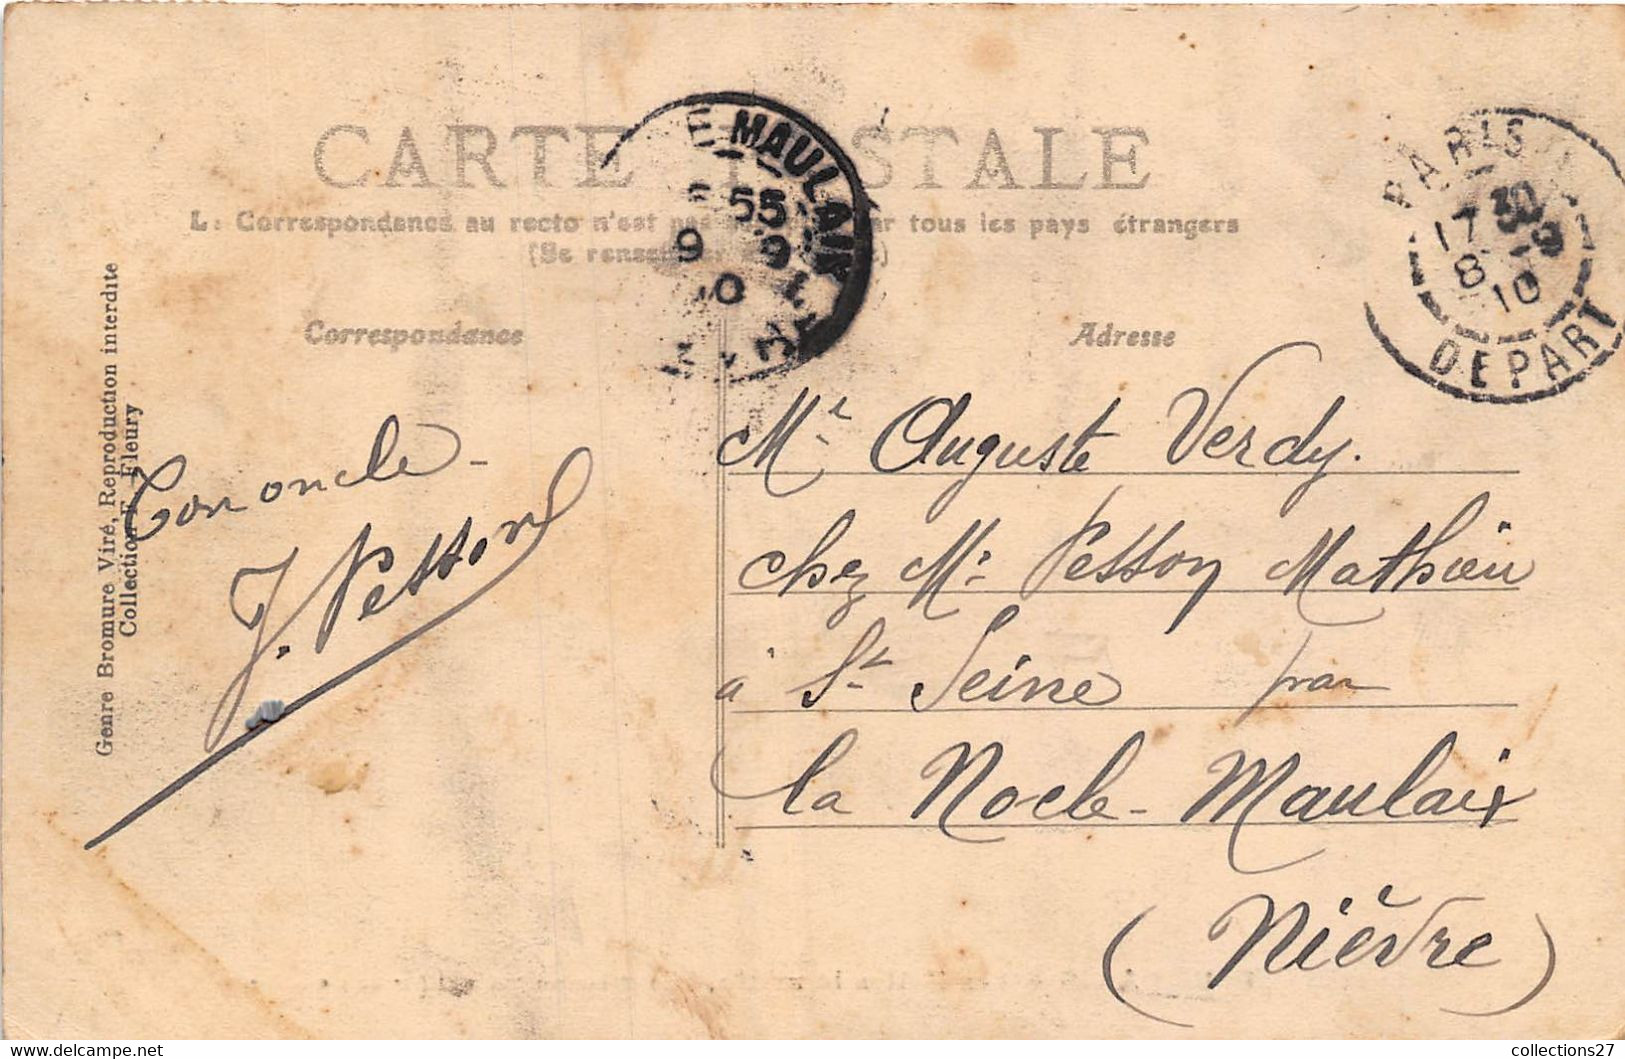 CARTE POSTALE
Correspondance au recto n'est pas tous les pays étrangers
(Se renseigner
Correspondance
Adresse
MAULAIX
55
9 9
10
PARIS
17 30
8 10
DEPART
Genre Bromure Viré, Reproduction interdite
Collection F. Fleury
Ton oncle
J. Pesson
Mr Auguste Verdy.
chez Mr Pesson Mathieu
à St Seine par
la Nocle-Maulaix
(Nièvre)
collections27